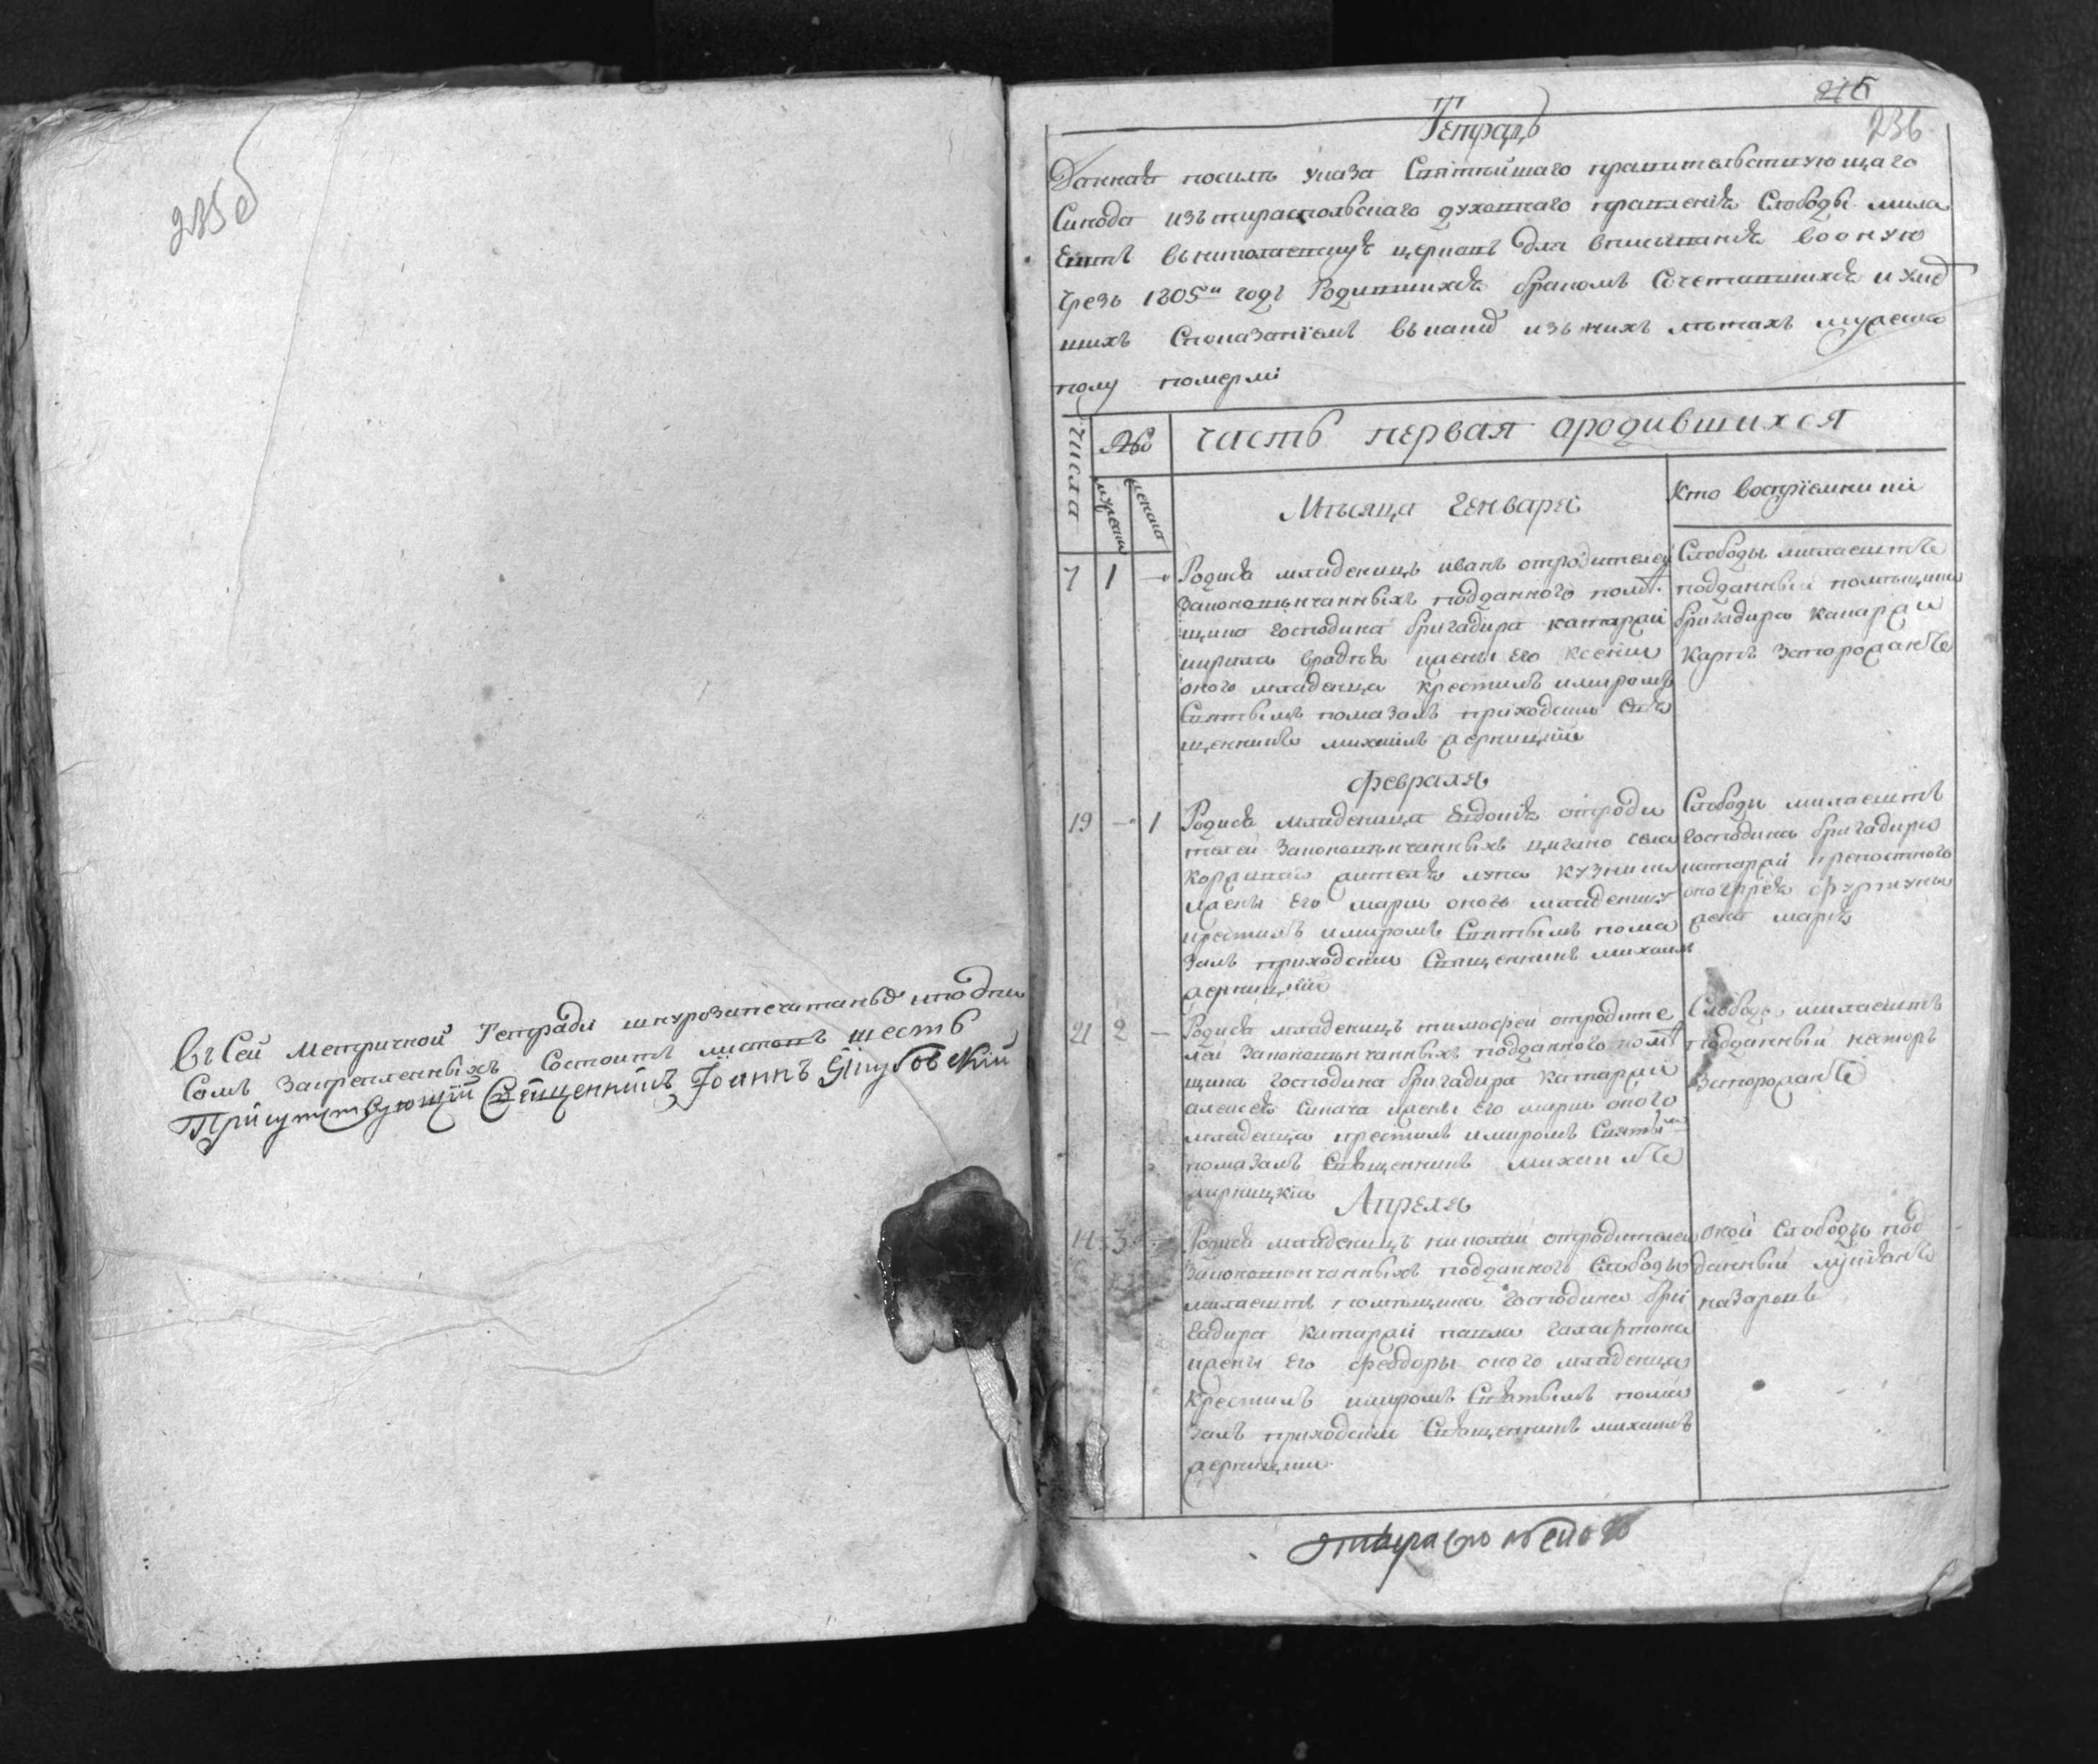 235об
Въ Сей Метричной Тетради шнурозапечатаной и подпи
сомъ Закрепленныхъ Состоитъ листовъ шесть
Присутствующій Священникъ Іоаннъ Якубовскій
236
Тетрадь
Данная посилѣ указа Святѣйшаго правительствующаго
Синода изъ тираспольскаго духовнаго правленія Слободы мила
ештъ въ николаевскую церковь для вписыванія во оную
чрезъ 1805й годъ Родившихся бракомъ Сочетавшихся и умер
шихъ Споказаніемъ въ каторые изъ нихъ лѣтахъ мужеска
полу померли
Числа
№
часть первая ородившихся
мужеска
женска
Мѣсяца Генваря
Кто воспріемники
7 1 —
Родися младенецъ иванъ отродителей
законовѣнчанныхъ подданного помѣ
щика господина бригадира катаржи
кирила жены его ксеніи
оного младенца крестилъ имиромъ
Святымъ помазалъ приходскій Свя
щенникъ михаилъ
Слободы милаештъ
подданный помѣщика
бригадира катаржи
Карпъ Запорожанъ
Февраля
19 — 1
Родися младеница Евдокія отроди
телей Законовѣнчанныхъ цигана села
жителя кузнеца
жены Его маріи оного младеницу
крестилъ имиромъ Святымъ пома
залъ приходскій Священникъ михаилъ
Слободы милаештъ
господина бригадира
катаржи крепостного
жена марія
21 2 —
Родися младенецъ тимофей отродите
лей Законовѣнчанныхъ подданного помѣ
щика господина бригадира катаржи
алексея жены Его маріи оного
младенца крестилъ имиромъ Святымъ
помазалъ Священникъ михаилъ
Слободы милаештъ
подданный несторъ
Запорожанъ
Апреля
14 3 —
Родися младенецъ николай отродителей
Законовѣнчанныхъ подданного Слободы
милаештъ помѣщика господина бри
гадира катаржи павла
жены Его феодоры оного младенца
крестилъ имиромъ Святымъ пома
залъ приходскій Священникъ михаилъ
оной Слободы под
данный лукіанъ
назаровъ